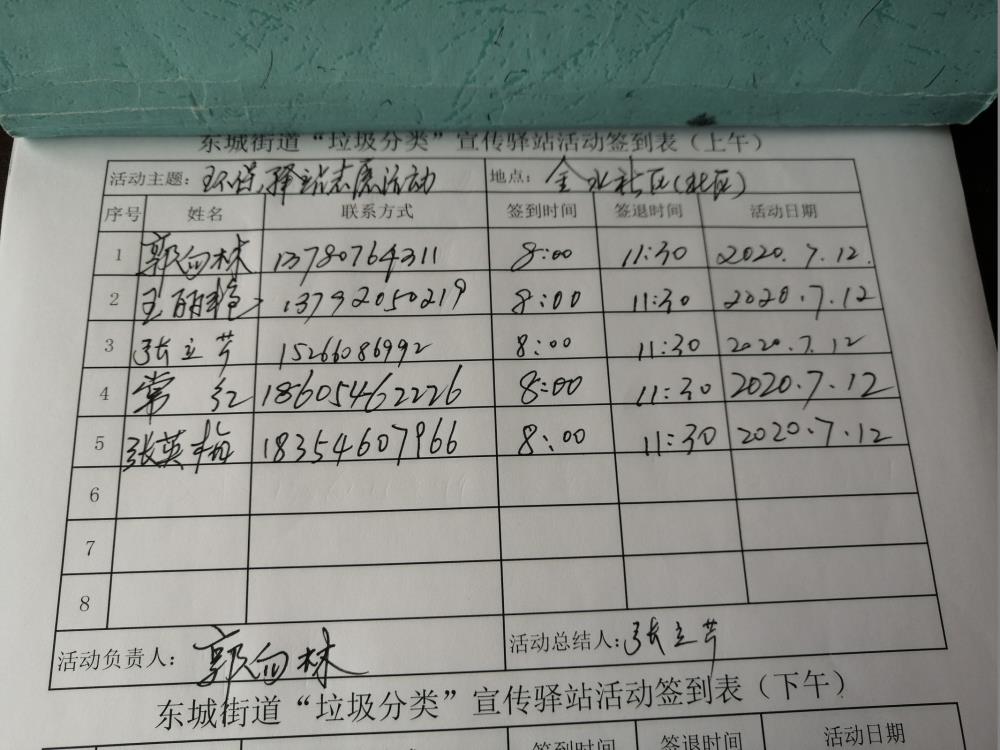 东城街道“垃圾分类”宣传驿站活动签到表(上午)
活动主题: 环保驿站志愿活动 地点: 金水社区(社区)
序号 姓名 联系方式 签到时间 签退时间 活动日期
1 郭向林 13780764311 8:00 11:30 2020.7.12.
2 王丽艳 13792050219 8:00 11:30 2020.7.12
3 张立芹 15266086992 8:00 11:30 2020.7.12
4 常红 18605462226 8:00 11:30 2020.7.12
5 张英梅 18354607966 8:00 11:30 2020.7.12
6
7
8
活动负责人: 郭向林 活动总结人: 张立芹
东城街道“垃圾分类”宣传驿站活动签到表(下午)
签到时间 签退时间 活动日期